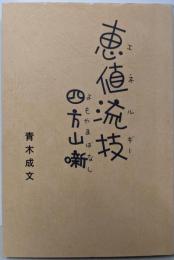 恵値流技
エネルギー
四方山噺
よもやまばなし
青木成文